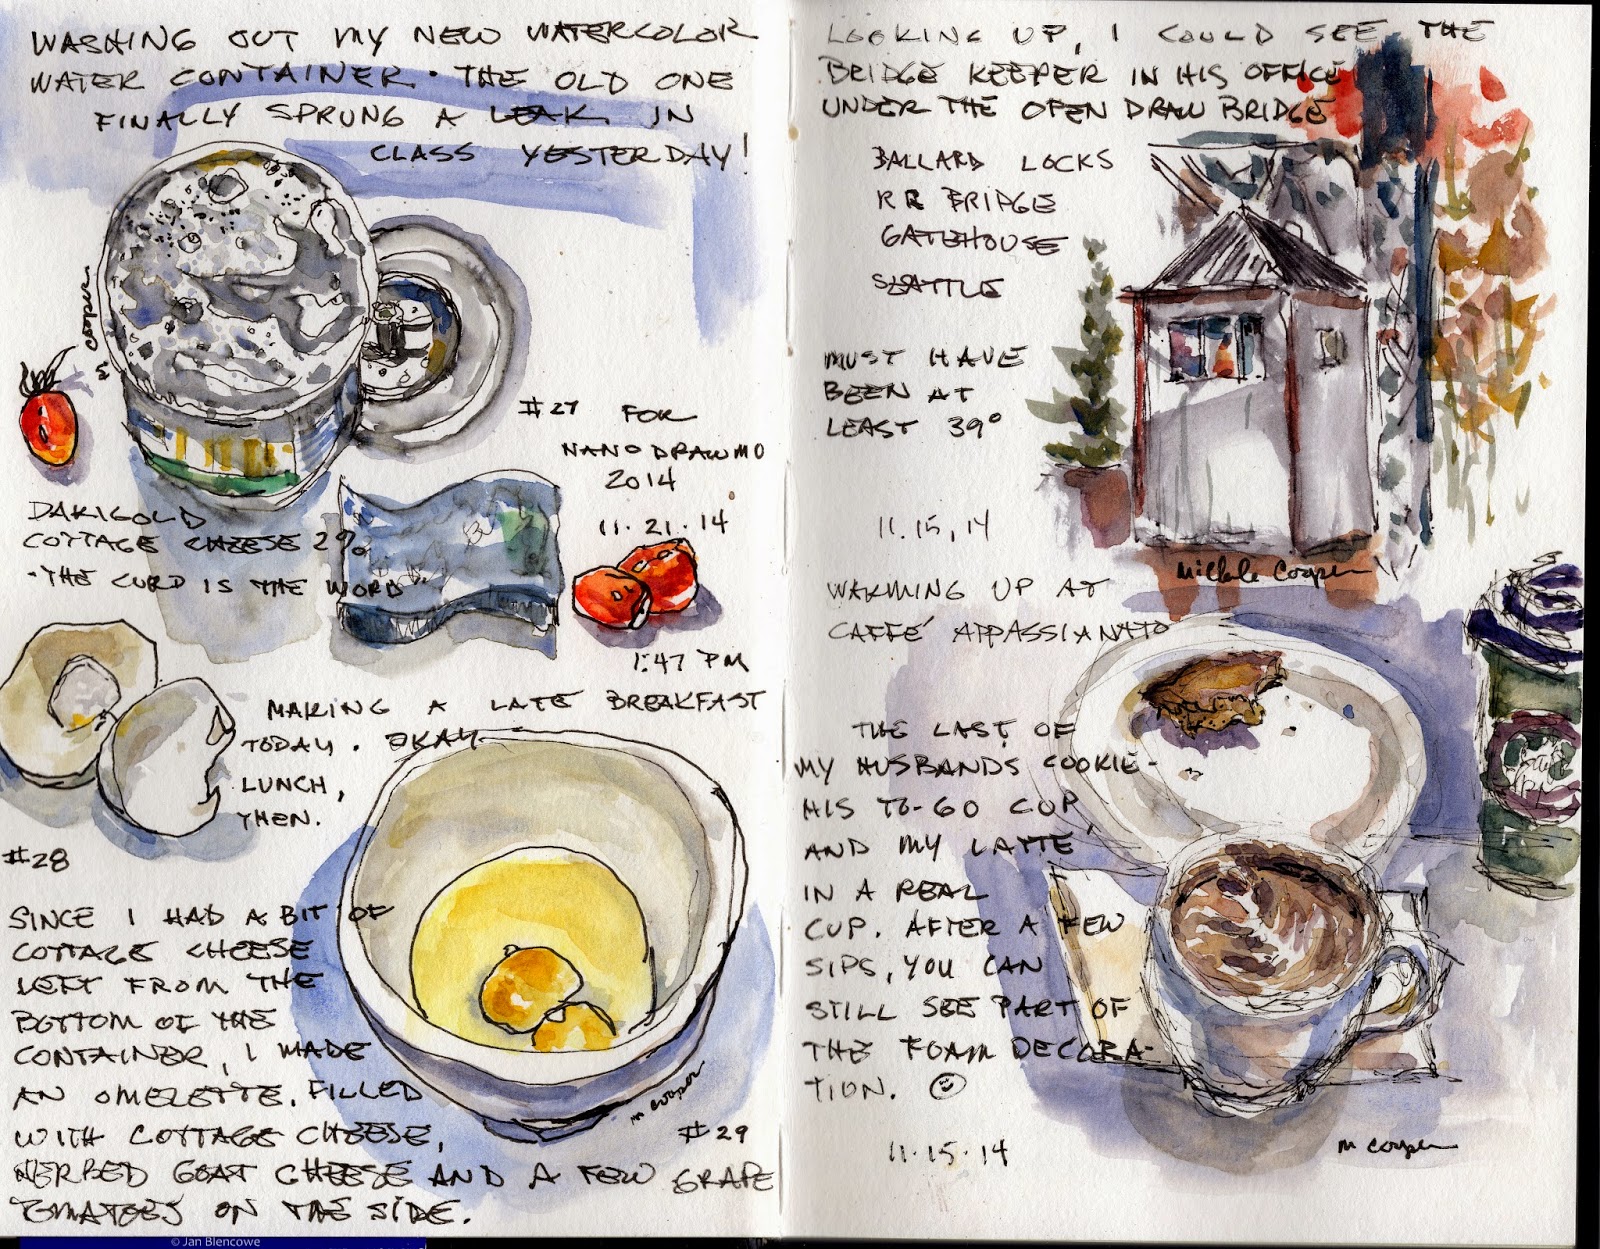 WASHING OUT MY NEW WATERCOLOR
WATER CONTAINER. THE OLD ONE
FINALLY SPRUNG A LEAK IN
CLASS YESTERDAY!
M COOPER
#27 FOR
NANODRAWMO
2014
11.21.14
DARIGOLD
COTTAGE CHEESE 2%
-THE CURD IS THE WORD
1:47 PM
MAKING A LATE BREAKFAST
TODAY. OKAY
LUNCH,
THEN.
#28
SINCE I HAD A BIT OF
COTTAGE CHEESE
LEFT FROM THE
BOTTOM OF THE
CONTAINER, I MADE
AN OMELETTE. FILLED
WITH COTTAGE CHEESE,
HERBED GOAT CHEESE AND A FEW GRAPE
TOMATOES ON THE SIDE.
M COOPER
#29
© Jan Blencowe
LOOKING UP, I COULD SEE THE
BRIDGE KEEPER IN HIS OFFICE
UNDER THE OPEN DRAW BRIDGE
BALLARD LOCKS
RR BRIDGE
GATEHOUSE
SEATTLE
MUST HAVE
BEEN AT
LEAST 39°
11.15.14
Michele Cooper
WARMING UP AT
CAFFÉ APPASSIANATO
THE LAST OF
MY HUSBANDS COOKIE-
HIS TO-GO CUP,
AND MY LATTE
IN A REAL
CUP. AFTER A FEW
SIPS, YOU CAN
STILL SEE PART OF
THE FOAM DECORA-
TION. ☺
11.15.14
M Cooper